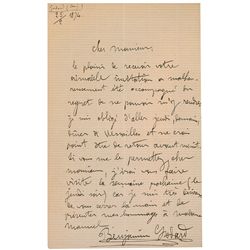 cher monsieur,
le plaisir de recevoir votre
aimable invitation a malheu-
reusement été accompagné du
regret de ne pouvoir m'y rendre,
je suis obligé d'aller jeudi,
de Versailles et ne crois
point être de retour avant
si vous me le permettez, cher
monsieur, j'irai vous faire
visite la semaine prochaine (le
jeudi soir) car je suis très
de vous serrer la main et de
présenter mes hommages à madame
Benjamin Godard